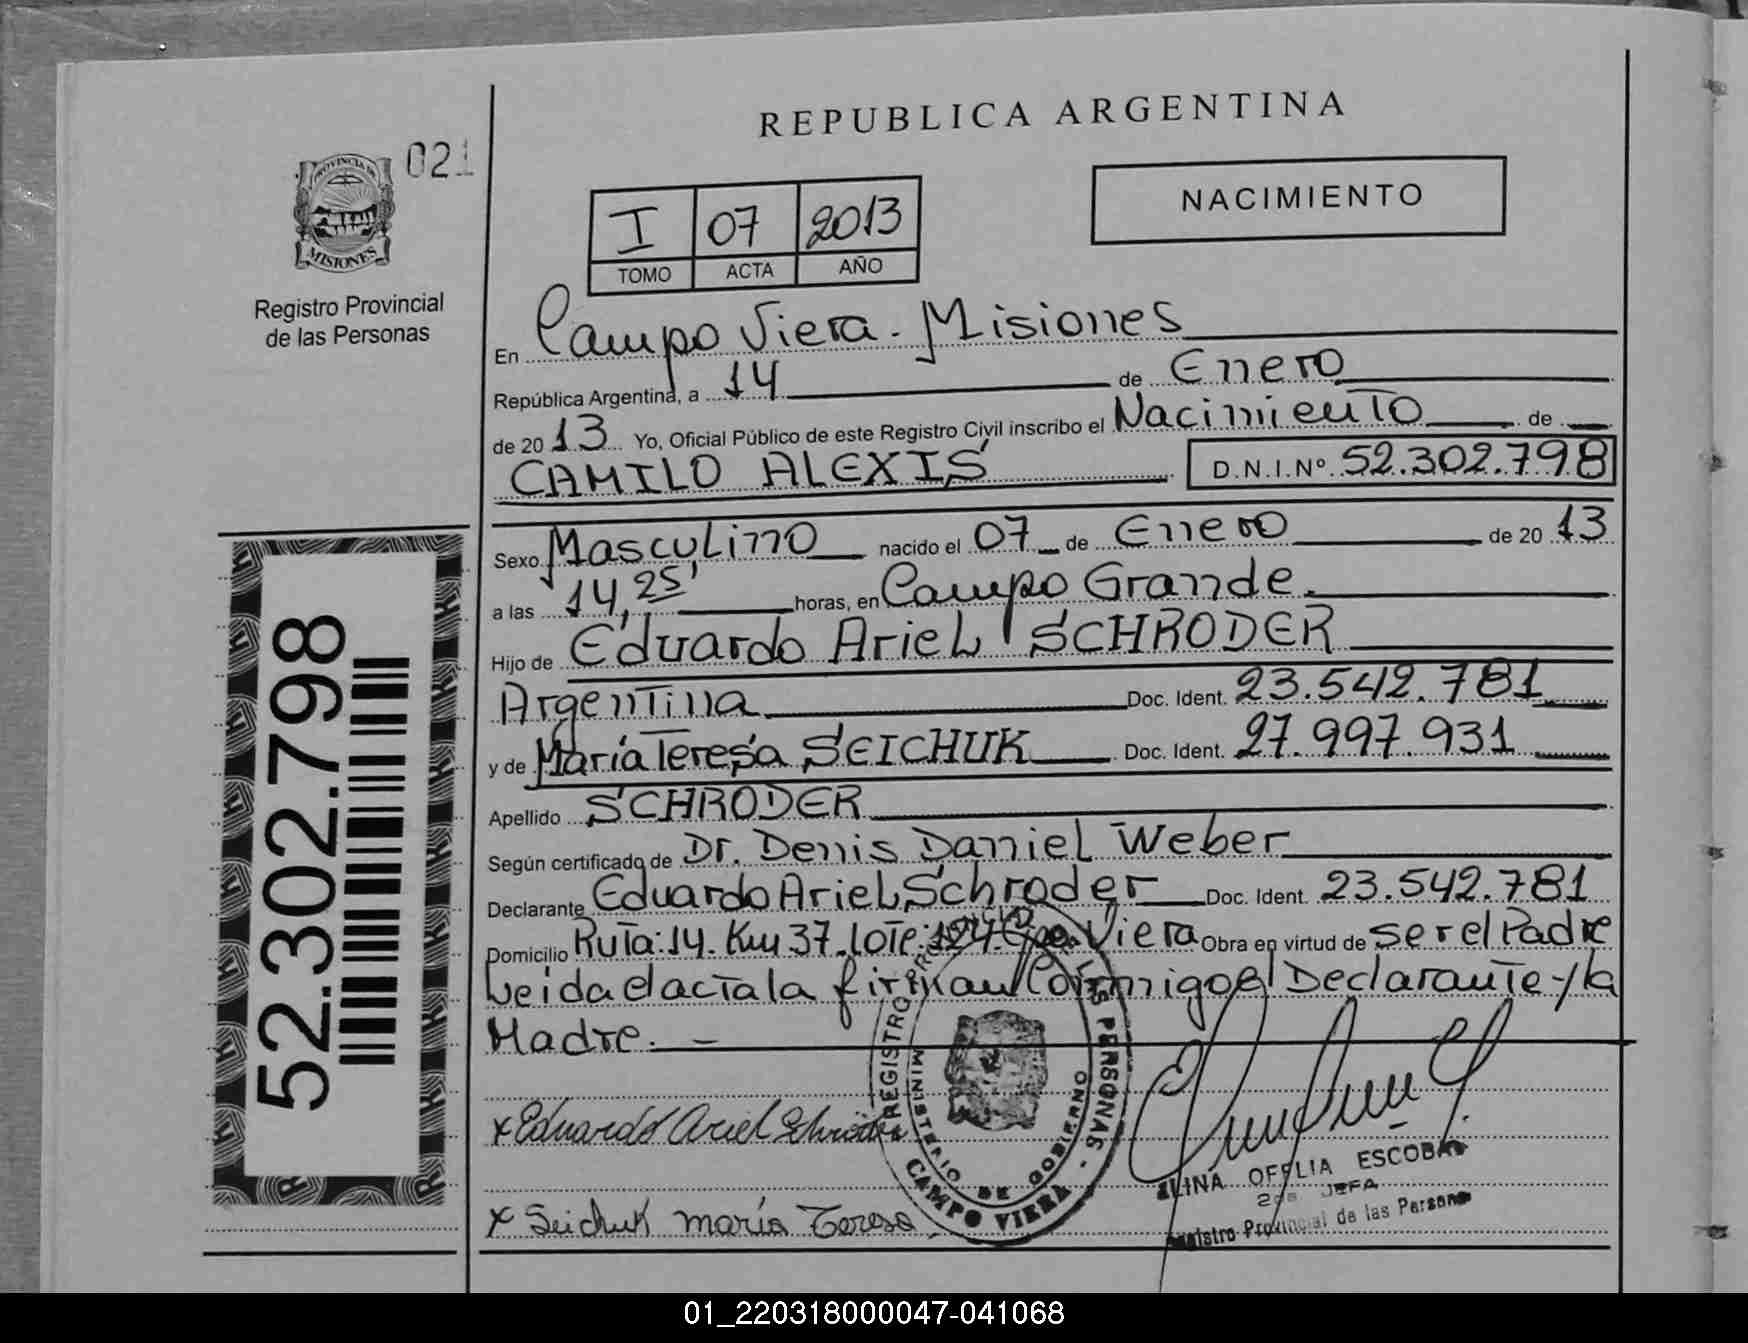 REPUBLICA ARGENTINA
021
PROVINCIA DE
MISIONES
Registro Provincial
de las Personas
NACIMIENTO
I 07 2013
TOMO ACTA AÑO
En Campo Viera - Misiones
República Argentina, a 14 de Enero
de 2013 Yo, Oficial Público de este Registro Civil inscribo el Nacimiento de
CAMILO ALEXIS D.N.I.Nº 52.302.798
Sexo Masculino nacido el 07 de Enero de 2013
a las 14,25' horas, en Campo Grande.
Hijo de Eduardo Ariel SCHRODER
Argentina Doc. Ident. 23.542.781
y de María Teresa SEICHUK Doc. Ident. 27.997.931
Apellido SCHRODER
Según certificado de Dr. Denis Daniel Weber
Declarante Eduardo Ariel Schroder Doc. Ident. 23.542.781
Domicilio Ruta:14. Km 37. Lote: Viera Obra en virtud de ser el Padre
Leida el acta la firman Conmigo el Declarante y la
Madre. -
x Eduardo Ariel Schroder
x Seichuk maría Teresa
REGISTRO PROVINCIAL DE LAS PERSONAS -
MINISTERIO DE GOBIERNO
CAMPO VIERA
OFELIA ESCOBAR
2da JEFA
Registro Provincial de las Personas
52.302.798
01_220318000047-041068